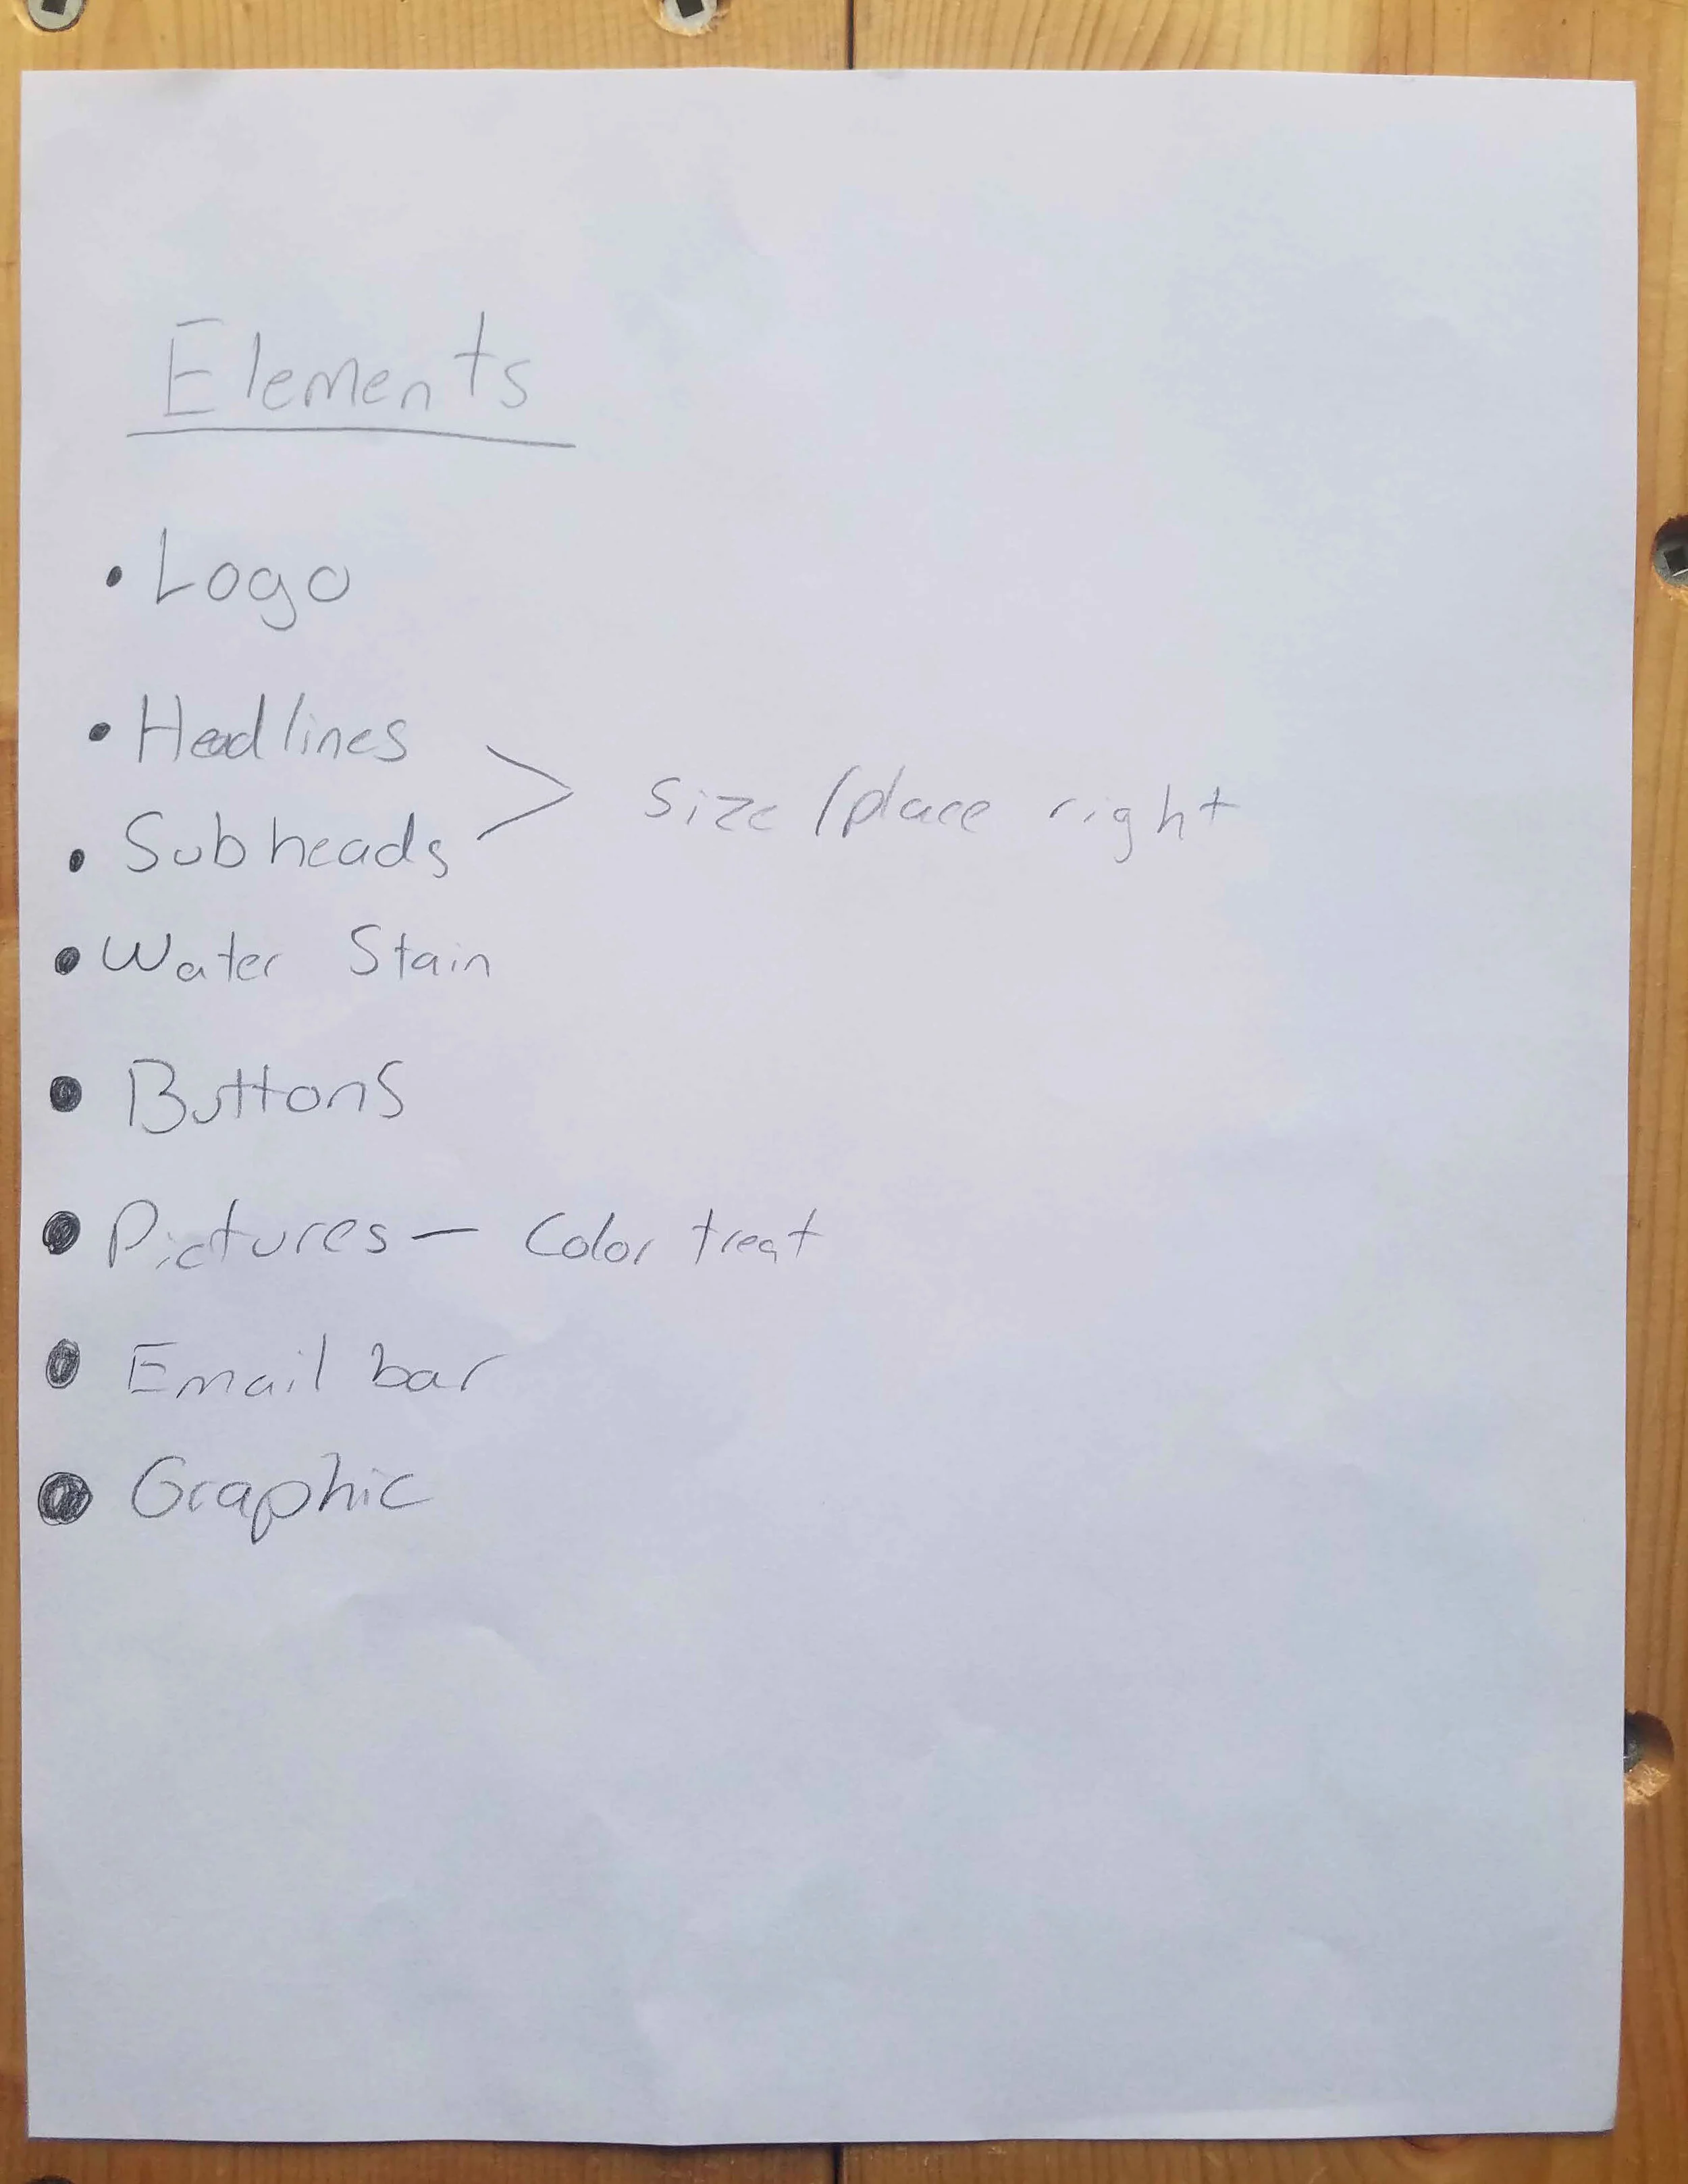 Elements
• Logo
• Headlines
• Subheads > size/place right
• Water Stain
• Buttons
• Pictures — Color treat
• Email bar
• Graphic